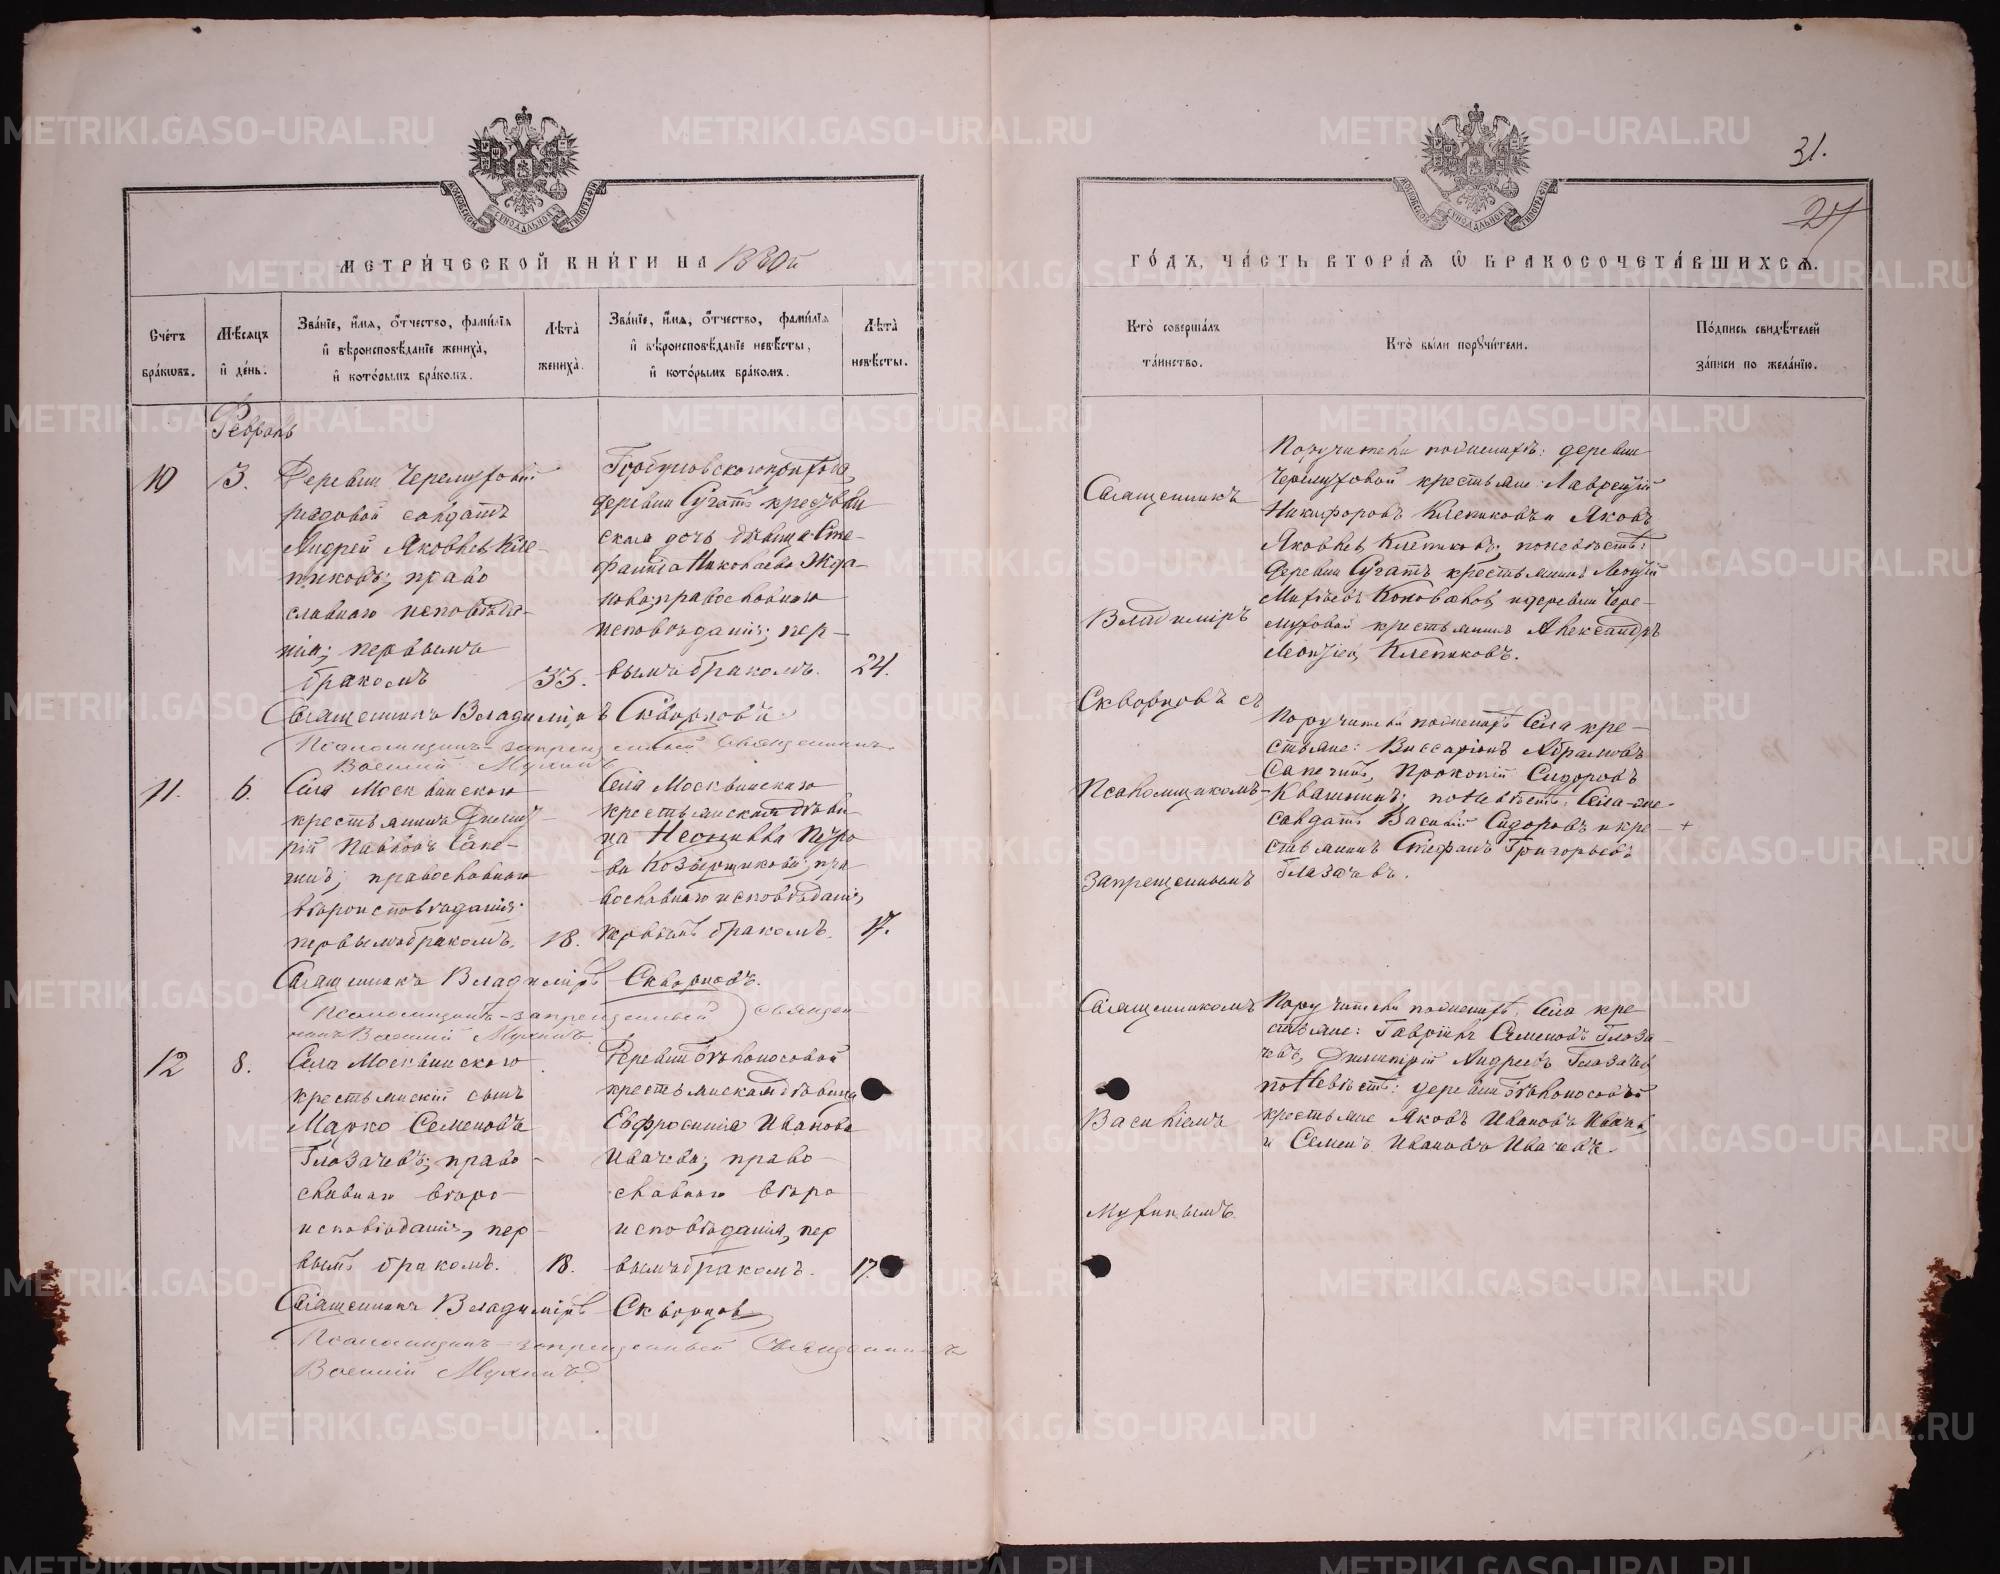 МЕТРИЧЕСКОЙ КНИГИ НА 1880й
Счетъ браковъ.
Мѣсяцъ и день.
Званіе, имя, отчество, фамилія и вѣроисповѣданіе жениха, и которымъ бракомъ.
Лѣта жениха.
Званіе, имя, отчество, фамилія и вѣроисповѣданіе невѣсты, и которымъ бракомъ.
Лѣта невѣсты.
Февраль
10
3.
Деревни Черемуховой
рядовой солдатъ
Андрей Яковлевъ Кле-
пиковъ; право
славнаго исповѣда-
нія; первымъ
бракомъ
33.
деревни Сугатъ крестьян
ская дочь дѣвица Сте-
фанида Николаева Жда-
нова; православнаго
исповѣданія; пер-
вымъ бракомъ.
24.
Священникъ Владиміръ Скворцовъ.
Псаломщикъ-запрещенный Священникъ
Василий Мухинъ
11.
6.
Села Москвинскаго
крестьянинъ Димит-
рій Павловъ Сапе-
гинъ; православнаго
вѣроисповѣданія:
первымъ бракомъ.
18.
Села Москвинскаго
крестьянская дѣви-
ца Неонила Петро
ва Козырщикова; пра
вославнаго исповѣданія,
первымъ бракомъ.
17.
Священникъ Владиміръ Скворцовъ.
Псаломщикъ-запрещенный Священ-
никъ Василий Мухинъ
12
8.
Села Москвинскаго
крестьянскій сынъ
Марко Семеновъ
Глазачевъ; право-
славнаго вѣро-
исповѣданія, пер-
вымъ бракомъ.
18.
Деревни Бѣлоносовой
крестьянская дѣвица
Евфросинія Иванова
Ивачева; право-
славнаго вѣро
исповѣданія, пер
вымъ бракомъ.
17.
Священникъ Владиміръ Скворцов
Псаломщикъ-запрещенный Священникъ
Василий Мухинъ
31.
ГОДЪ, ЧАСТЬ ВТОРАЯ Ѡ БРАКОСОЧЕТАВШИХСЯ.
Кто совершалъ таинство.
Кто были поручители.
Подпись свидѣтелей записи по желанію.
Священникъ
Владиміръ
Скворцовъ съ
Псаломщикомъ-
Запрещеннымъ
Священникомъ
Василіемъ
Мухинымъ.
Поручители по женихѣ: деревни
Черемуховой крестьяне: Лаврентій
Никифоровъ Клепиковъ и Яковъ
Яковлевъ Клепиковъ; по невѣстѣ:
деревни Сугатъ крестьянинъ Леонтій
Коноваловъ, и деревни Чере-
муховой крестьянинъ Александръ
Леонтіевъ Клепиковъ.
Поручители по женихѣ Села кре-
стьяне: Виссаріонъ Абрамовъ
Сапегинъ, Прокопій Сидоровъ
Квашнинъ; по Невѣстѣ: Села-же-
солдатъ Василій Сидоровъ и кре-
стьянинъ Стефанъ Григорьевъ
Глазачевъ.
Поручители по женихѣ, Села кре-
стьяне: Гавріилъ Семеновъ Глаза-
чевъ, Димитрій Андреевъ Глазачев
по Невѣстѣ: деревни Бѣлоносовой
крестьяне Яковъ Ивановъ Ивачев
и Семенъ Ивановъ Ивачевъ.
METRIKI.GASO-URAL.RU